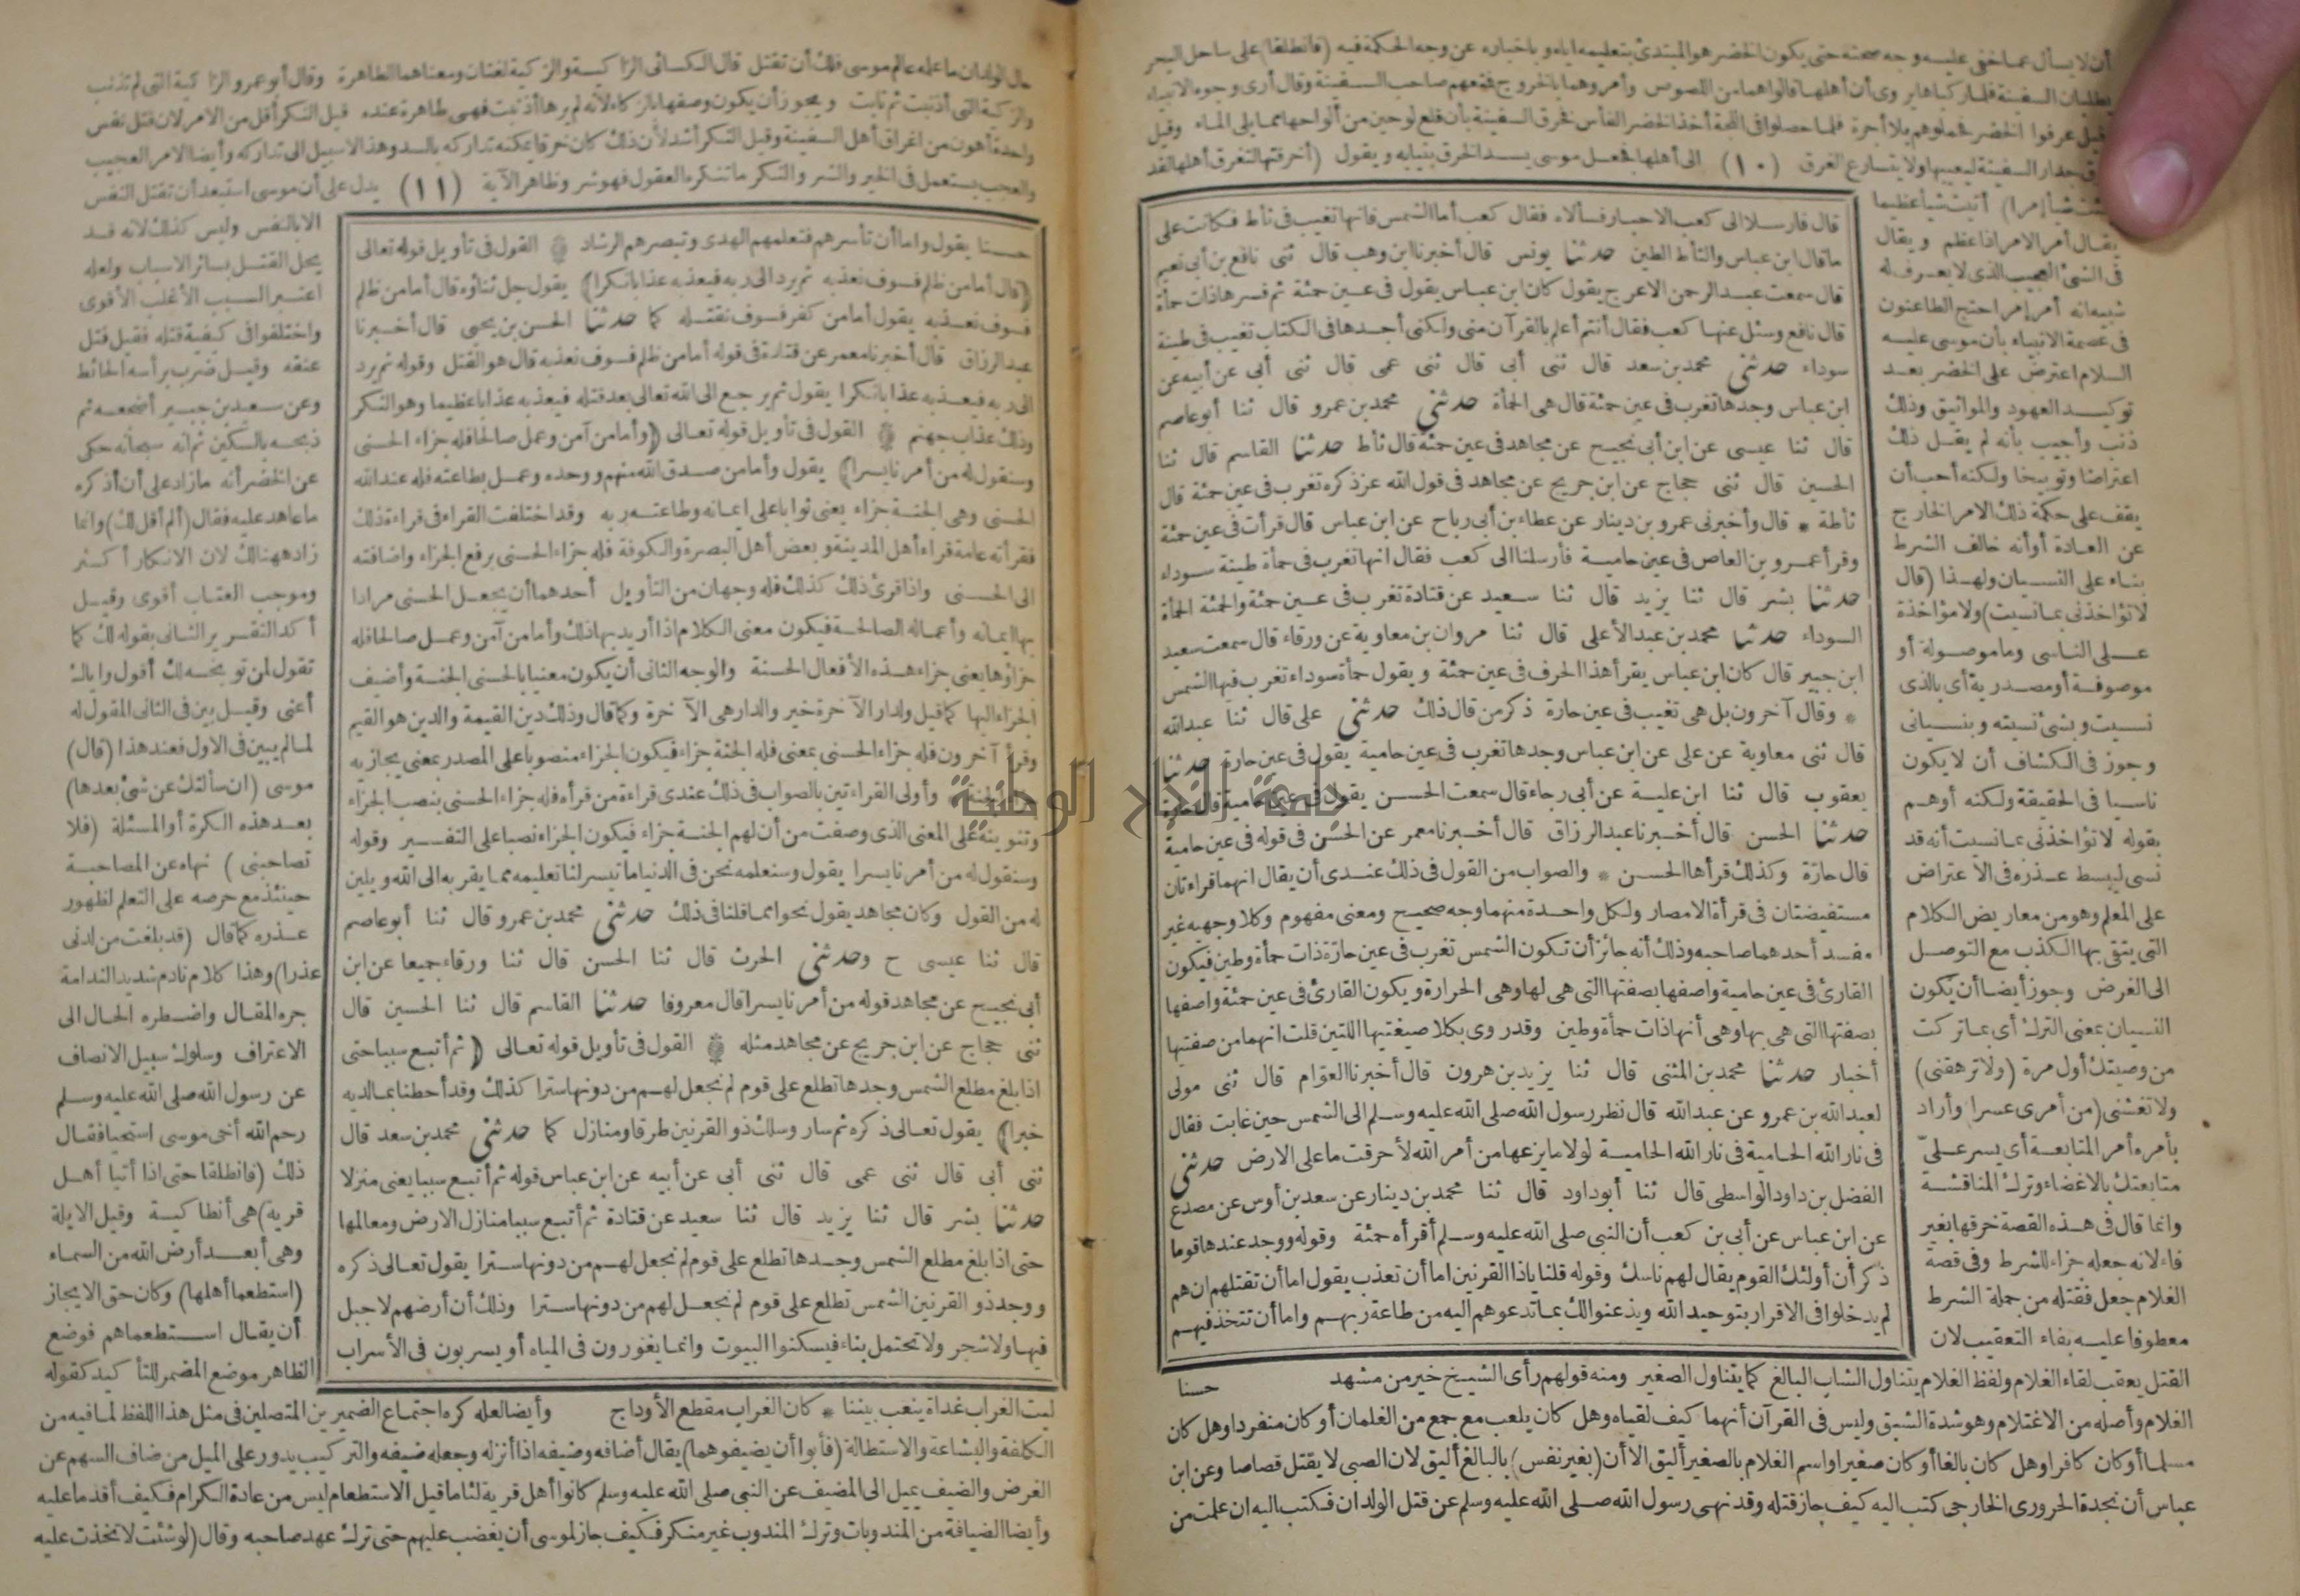 أن لا يسأل عما خفي عليه وجه صحته حتى يكون الخضر هو المبتدئ بتعليمه اياه وباخباره عن وجه الحكمة فيه (فانطلقا) على ساحل البحر
يطلبان السفينة فلما ركباها يروى أن أهلها قالوا هما من اللصوص وأمروهما بالخروج فمنعهم صاحب السفينة وقال أرى وجوه الانبياء
وقيل عرفوا الخضر فحملوهم بلا أجرة فلما حصلوا في اللجة أخذ الخضر الفأس فخرق السفينة بأن قلع لوحين من ألواحها مما يلي الماء وقيل
خرق جدار السفينة ليعيبها ولا يتسارع الغرق (١٠) الى أهلها فجعل موسى يسد الخرق بثيابه ويقول (أخرقتها لتغرق أهلها لقد
جئت شيأ إمرا) أتيت شيأ عظيما
يقال أمر الامر اذا عظم ويقال
في الشئ العجيب الذى لا يعرف له
شبيه انه أمر إمر احتج الطاعنون
في عصمة الانبياء بأن موسى عليه
السلام اعترض على الخضر بعد
توكيد العهود والمواثيق وذلك
ذنب وأجيب بأنه لم يقل ذلك
اعتراضا وتوبيخا ولكنه أحب أن
يقف على حكمة ذلك الامر الخارج
عن العادة أو أنه خالف الشرط
بناء على النسيان ولهذا (قال
لا تؤاخذني بما نسيت) ولا مؤاخذة
على الناسى وما موصولة أو
موصوفة أو مصدرية أى بالذى
نسيت وبشئ نسيته وبنسيانى
وجوز في الكشاف أن لا يكون
ناسيا في الحقيقة ولكنه أوهم
بقوله لا تؤاخذني بما نسيت أنه قد
نسى ليبسط عذره في الاعتراض
على المعلم وهو من معاريض الكلام
التي يتقى بها الكذب مع التوصل
الى الغرض وجوز أيضا أن يكون
النسيان بمعنى الترك أى بما تركت
من وصيتك أول مرة (ولا ترهقنى)
ولا تغشنى (من أمرى عسرا) وأراد
بأمره أمر المتابعة أى يسر علىّ
متابعتك بالاغضاء وترك المناقشة
وانما قال في هذه القصة خرقها بغير
فاء لانه جعله جزاء للشرط وفي قصة
الغلام جعل فقتله من جملة الشرط
معطوفا عليه بفاء التعقيب لان
قال فارسلا الى كعب الاحبار فسألاه فقال كعب أما الشمس فانها تغيب في ثأط فكانت على
ما قال ابن عباس والثأط الطين حدثنا يونس قال أخبرنا ابن وهب قال ثنى نافع بن أبي نعيم
قال سمعت عبد الرحمن الاعرج يقول كان ابن عباس يقول في عين حمئة ثم فسرها ذات حمأة
قال نافع وسئل عنها كعب فقال أنتم أعلم بالقرآن منى ولكنى أجدها في الكتاب تغيب في طينة
سوداء حدثني محمد بن سعد قال ثنى أبي قال ثنى عمى قال ثنى أبي عن أبيه عن
ابن عباس وجدها تغرب في عين حمئة قال هى الحمأة حدثني محمد بن عمرو قال ثنا أبو عاصم
قال ثنا عيسى عن ابن أبي نجيح عن مجاهد في عين حمئة قال ثأط حدثنا القاسم قال ثنا
الحسين قال ثنى حجاج عن ابن جريج عن مجاهد في قول الله عز ذكره تغرب في عين حمئة قال
ثأطة * قال وأخبرنى عمرو بن دينار عن عطاء بن أبي رباح عن ابن عباس قال قرأت في عين حمئة
وقرأ عمرو بن العاص في عين حامية فأرسلنا الى كعب فقال انها تغرب في حمأة طينة سوداء
حدثنا بشر قال ثنا يزيد قال ثنا سعيد عن قتادة تغرب في عين حمئة والحمئة الحمأة
السوداء حدثنا محمد بن عبد الأعلى قال ثنا مروان بن معاوية عن ورقاء قال سمعت سعيد
ابن جبير قال كان ابن عباس يقرأ هذا الحرف في عين حمئة ويقول حمأة سوداء تغرب فيها الشمس
* وقال آخرون بل هى تغيب في عين حارة ذكر من قال ذلك حدثني على قال ثنا عبد الله
قال ثنى معاوية عن على عن ابن عباس وجدها تغرب في عين حامية يقول في عين حارة حدثنا
يعقوب قال ثنا ابن علية عن أبي رجاء قال سمعت الحسن يقول في عين حامية قال حارة
حدثنا الحسن قال أخبرنا عبد الرزاق قال أخبرنا معمر عن الحسن في قوله في عين حامية
قال حارّة وكذلك قرأها الحسن * والصواب من القول في ذلك عندى أن يقال انهما قراءتان
مستفيضتان في قرأة الامصار ولكل واحدة منهما وجه صحيح ومعنى مفهوم وكلا وجهيه غير
مفسد أحدهما صاحبه وذلك أنه جائز أن تكون الشمس تغرب في عين حارّة ذات حمأة وطين فيكون
القارئ في عين حامية واصفها بصفتها التي هى لها وهى الحرارة ويكون القارئ في عين حمئة واصفها
بصفتها التي هى بها وهى أنها ذات حمأة وطين وقد روى بكلا صيغتيها اللتين قلت انهما من صفتيها
أخبار حدثنا محمد بن المثنى قال ثنا يزيد بن هرون قال أخبرنا العوّام قال ثنى مولى
لعبد الله بن عمرو عن عبد الله قال نظر رسول الله صلى الله عليه وسلم الى الشمس حين غابت فقال
في نار الله الحامية في نار الله الحامية لولا ما يزعها من أمر الله لأحرقت ما على الارض حدثني
الفضل بن داود الواسطى قال ثنا أبو داود قال ثنا محمد بن دينار عن سعد بن أوس عن مصدع
عن ابن عباس عن أبي بن كعب أن النبي صلى الله عليه وسلم أقرأه حمئة وقوله ووجد عندها قوما
ذكر أن أولئك القوم يقال لهم ناسك وقوله قلنا ياذا القرنين اما أن تعذب يقول اما أن تقتلهم ان هم
لم يدخلوا في الاقرار بتوحيد الله ويذعنوا لك بما تدعوهم اليه من طاعة ربهم واما أن تتخذ فيهم
حسنا
القتل يعقب لقاء الغلام ولفظ الغلام يتناول الشاب البالغ كما يتناول الصغير ومنه قولهم رأى الشيخ خير من مشهد
الغلام وأصله من الاغتلام وهو شدة الشبق وليس في القرآن أنهما كيف لقياه وهل كان يلعب مع جمع من الغلمان أو كان منفردا وهل كان
مسلما أو كان كافرا وهل كان بالغا أو كان صغيرا واسم الغلام بالصغير أليق الا أن (بغير نفس) بالبالغ أليق لان الصبي لا يقتل قصاصا وعن ابن
عباس أن نجدة الحرورى الخارجى كتب اليه كيف جاز قتله وقد نهى رسول الله صلى الله عليه وسلم عن قتل الولدان فكتب اليه ان علمت من
حال الولدان ما علمه عالم موسى فلك أن تقتل قال الكسائى الزاكية والزكية لغتان ومعناهما الطاهرة وقال أبو عمرو الزاكية التي لم تذنب
والزكية التي أذنبت ثم تابت ويجوز أن يكون وصفها بالزكاء لانه لم يرها أذنبت فهى طاهرة عنده قيل النكر أقل من الامر لان قتل نفس
واحدة أهون من اغراق أهل السفينة وقيل النكر أشد لأن ذلك كان خرقا يمكنه تداركه بالسد وهذا لا سبيل الى تداركه وأيضا الامر العجيب
والعجب يستعمل في الخير والشر والنكر ما تنكره العقول فهو شر وظاهر الآية (١١) يدل على أن موسى استبعد أن تقتل النفس
حسنا يقول واما أن تأسرهم فتعلمهم الهدى وتبصرهم الرشاد ۞ القول في تأويل قوله تعالى
(قال أما من ظلم فسوف نعذبه ثم يرد الى ربه فيعذبه عذابا نكرا) يقول جل ثناؤه قال أما من ظلم
فسوف نعذبه يقول أما من كفر فسوف نقتله كما حدثنا الحسن بن يحيى قال أخبرنا
عبد الرزاق قال أخبرنا معمر عن قتادة في قوله أما من ظلم فسوف نعذبه قال هو القتل وقوله ثم يرد
الى ربه فيعذبه عذابا نكرا يقول ثم يرجع الى الله تعالى بعد قتله فيعذبه عذابا عظيما وهو النكر
وذلك عذاب جهنم ۞ القول في تأويل قوله تعالى (وأما من آمن وعمل صالحا فله جزاء الحسنى
وسنقول له من أمرنا يسرا) يقول وأما من صدق الله منهم ووحده وعمل بطاعته فله عند الله
الحسنى وهى الجنة جزاء يعنى ثوابا على ايمانه وطاعته ربه وقد اختلفت القراء في قراءة ذلك
فقرأته عامة قراء أهل المدينة وبعض أهل البصرة والكوفة فله جزاء الحسنى برفع الجزاء واضافته
الى الحسنى واذا قرئ ذلك كذلك فله وجهان من التأويل أحدهما أن يجعل الحسنى مرادا
بها ايمانه وأعماله الصالحة فيكون معنى الكلام اذا أريد بها ذلك وأما من آمن وعمل صالحا فله
جزاؤها يعنى جزاء هذه الأفعال الحسنة والوجه الثانى أن يكون معنيا بالحسنى الجنة وأضيف
الجزاء اليها كما قيل ولدار الآخرة خير والدار هى الآخرة وكما قال وذلك دين القيمة والدين هو القيم
وقرأ آخرون فله جزاء الحسنى بمعنى فله الجنة جزاء فيكون الجزاء منصوبا على المصدر بمعنى يجازيه
جزاء الجنة * وأولى القراءتين بالصواب في ذلك عندى قراءة من قرأه فله جزاء الحسنى بنصب الجزاء
وتنوينه على المعنى الذى وصفت من أن لهم الجنة جزاء فيكون الجزاء نصبا على التفسير وقوله
وسنقول له من أمرنا يسرا يقول وسنعلمه نحن في الدنيا ما تيسر لنا تعليمه مما يقربه الى الله ويلين
له من القول وكان مجاهد يقول نحوا مما قلنا في ذلك حدثني محمد بن عمرو قال ثنا أبو عاصم
قال ثنا عيسى ح وحدثني الحرث قال ثنا الحسن قال ثنا ورقاء جميعا عن ابن
أبي نجيح عن مجاهد قوله من أمرنا يسرا قال معروفا حدثنا القاسم قال ثنا الحسين قال
ثنى حجاج عن ابن جريج عن مجاهد مثله ۞ القول في تأويل قوله تعالى (ثم أتبع سببا حتى
اذا بلغ مطلع الشمس وجدها تطلع على قوم لم نجعل لهم من دونها سترا كذلك وقد أحطنا بما لديه
خبرا) يقول تعالى ذكره ثم سار وسلك ذو القرنين طرقا ومنازل كما حدثني محمد بن سعد قال
ثنى أبي قال ثنى عمى قال ثنى أبي عن أبيه عن ابن عباس قوله ثم أتبع سببا يعنى منزلا
حدثنا بشر قال ثنا يزيد قال ثنا سعيد عن قتادة ثم أتبع سببا منازل الارض ومعالمها
حتى اذا بلغ مطلع الشمس وجدها تطلع على قوم لم نجعل لهم من دونها سترا يقول تعالى ذكره
ووجد ذو القرنين الشمس تطلع على قوم لم نجعل لهم من دونها سترا وذلك أن أرضهم لا جبل
فيها ولا شجر ولا تحتمل بناء فيسكنوا البيوت وانما يغورون في المياه أو يسربون في الأسراب
الا بالنفس وليس كذلك لانه قد
يحل القتل بسائر الاسباب ولعله
اعتبر السبب الأغلب الأقوى
واختلفوا في كيفية قتله فقيل قتل
عنقه وقيل ضرب برأسه الحائط
وعن سعيد بن جبير أضجعه ثم
ذبحه بالسكين ثم انه سبحانه حكى
عن الخضر أنه ما زاد على أن أذكره
ما عاهد عليه فقال (ألم أقل لك) وانما
زاد ههنا لك لان الانكار أكثر
وموجب العتاب أقوى وقيل
أكد التقرير الثانى بقوله لك كما
تقول لمن توبخه لك أقول واياك
أعنى وقيل بين في الثانى المقول له
لما لم يبين في الاول فعند هذا (قال)
موسى (ان سألتك عن شئ بعدها)
بعد هذه الكرة أو المسئلة (فلا
تصاحبنى) نهاه عن المصاحبة
حينئذ مع حرصه على التعلم لظهور
عذره كما قال (قد بلغت من لدنى
عذرا) وهذا كلام نادم شديد الندامة
جره المقال واضطره الحال الى
الاعتراف وسلوك سبيل الانصاف
عن رسول الله صلى الله عليه وسلم
رحم الله أخى موسى استحيا فقال
ذلك (فانطلقا حتى اذا أتيا أهل
قرية) هى أنطاكية وقيل الابلة
وهى أبعد أرض الله من السماء
(استطعما أهلها) وكان حق الايجاز
أن يقال استطعماهم فوضع
الظاهر موضع المضمر للتأكيد كقوله
ليت الغراب غداة ينعب بيننا * كان الغراب مقطع الأوداج وأيضا لعله كره اجتماع الضميرين المتصلين في مثل هذا اللفظ لما فيه من
الكلفة والبشاعة والاستطالة (فأبوا أن يضيفوهما) يقال أضافه وضيفه اذا أنزله وجعله ضيفه والتركيب يدور على الميل من ضاف السهم عن
الغرض والضيف يميل الى المضيف عن النبي صلى الله عليه وسلم كانوا أهل قرية لئاما قيل الاستطعام ليس من عادة الكرام فكيف أقدما عليه
وأيضا الضيافة من المندوبات وترك المندوب غير منكر فكيف جاز لموسى أن يغضب عليهم حتى ترك عهد صاحبه وقال (لو شئت لاتخذت عليه
جامعة النجاح الوطنية